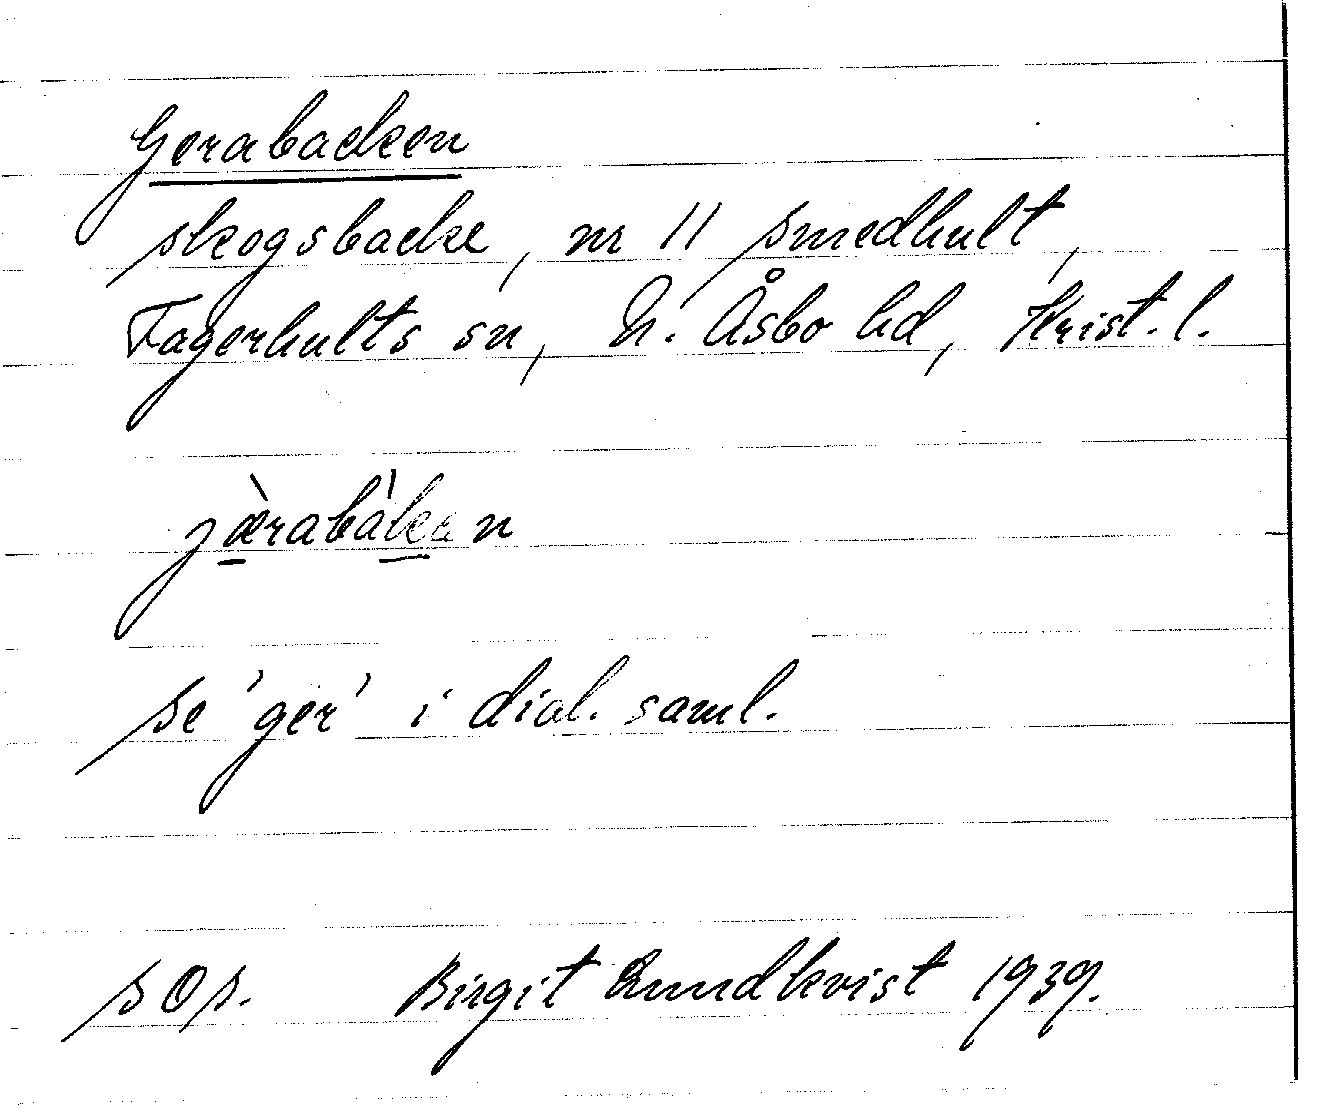 Gerabacken
skogsbacke, nr 11 Smedhult,
Fagerhults sn, N. Åsbo hd, Krist. l.
jæ̀rabàkan
se 'ger' i dial. saml.
sOs. Birgit Lundkvist 1939.